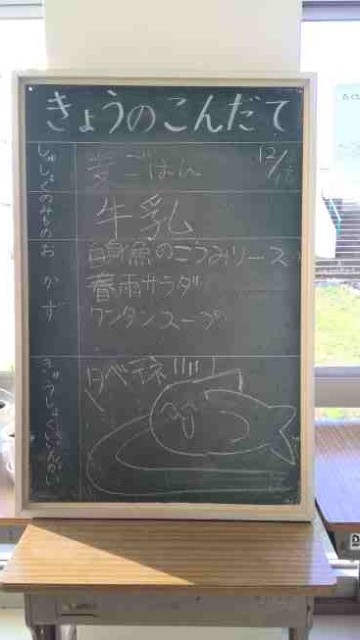 きょうのこんだて
しゅしょく 麦ごはん 12/
のみもの 牛乳
おかず 白身魚のこうみソース
春雨サラダ
ワンタンスープ
きゅうしょくいいんかい
タベテネ!!!!